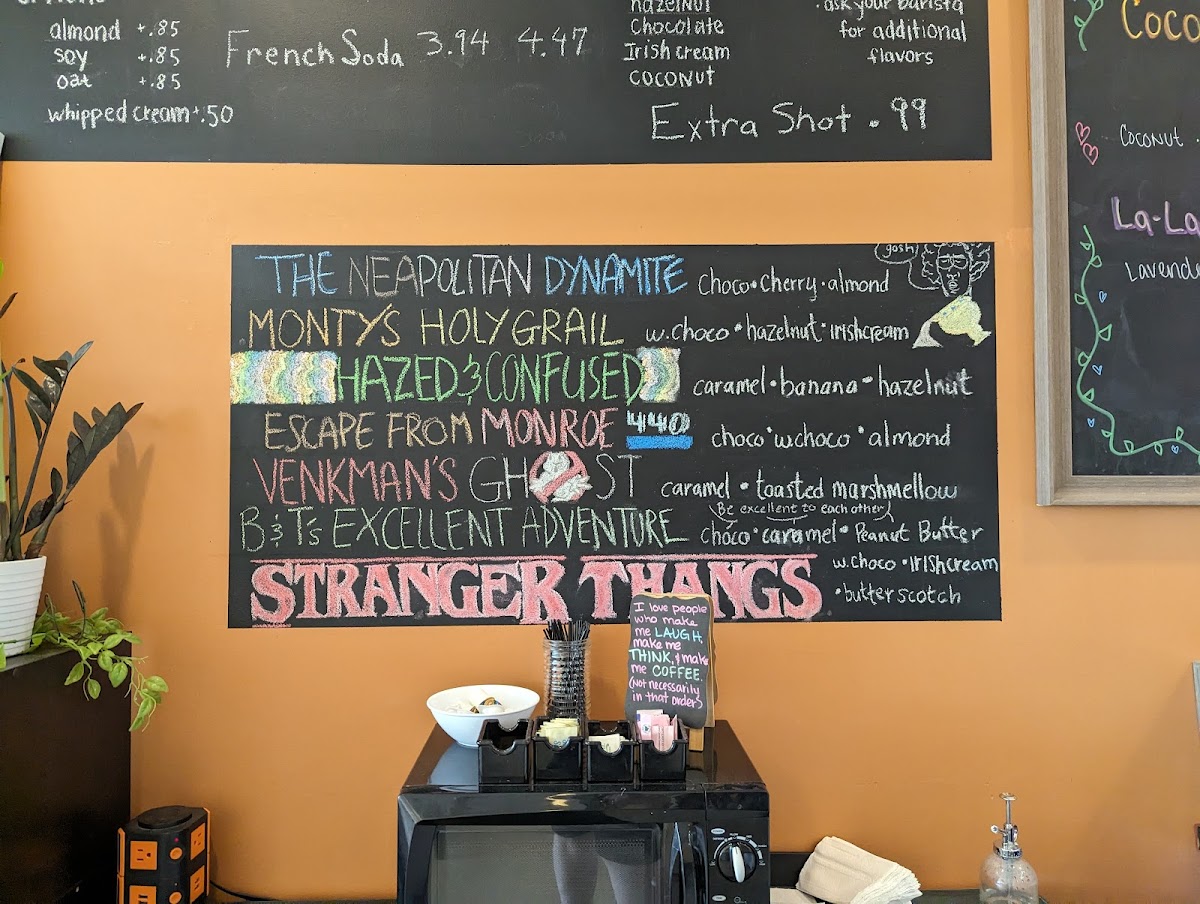 almond +.85
soy +.85
oat +.85
whipped cream +.50
French Soda 3.94 4.47
hazelnut
Chocolate
Irish cream
coconut
ask your barista
for additional
flavors
Extra Shot .99
gosh!
THE NEAPOLITAN DYNAMITE choco•cherry•almond
MONTY'S HOLY GRAIL w.choco•hazelnut•irishcream
HAZED & CONFUSED caramel•banana•hazelnut
ESCAPE FROM MONROE 440 choco•w.choco•almond
VENKMAN'S GHOST caramel•toasted marshmellow
Be excellent to each other
B&T's EXCELLENT ADVENTURE choco•caramel•Peanut Butter
STRANGER THANGS w.choco•Irishcream
•butterscotch
I love people
who make
me LAUGH,
make me
THINK, & make
me COFFEE.
(Not necessarily
in that order)
Coco
Coconut
La-La
Lavende